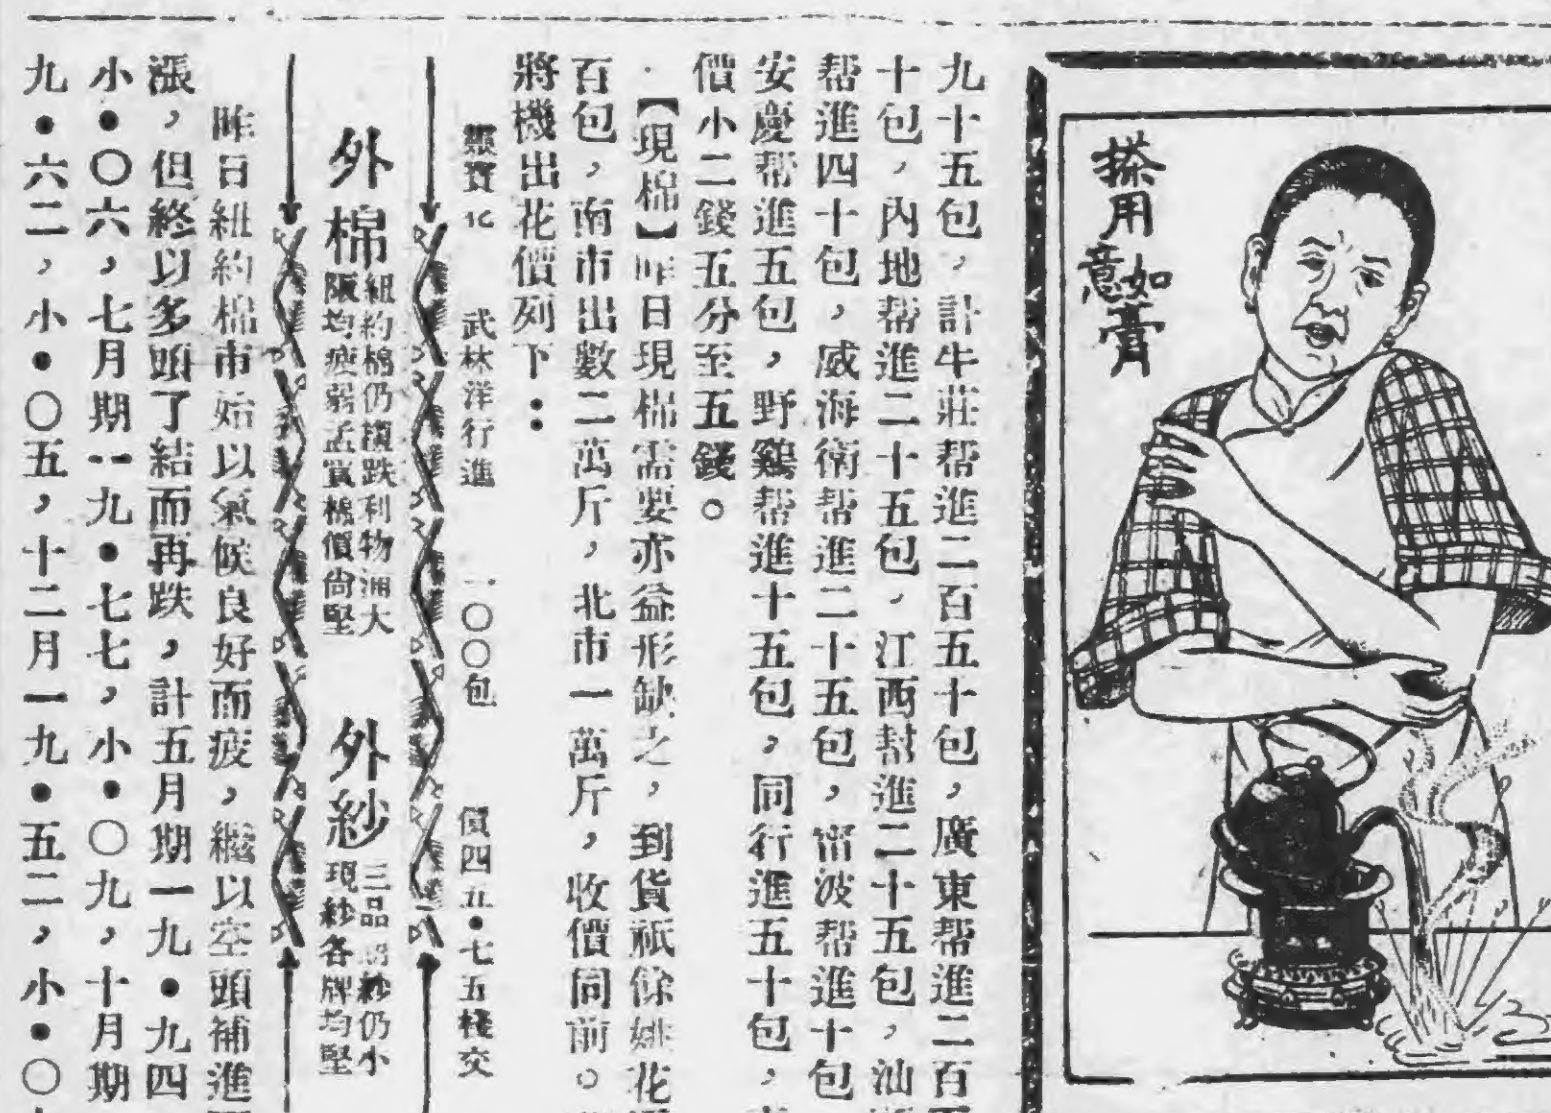 搽用
如意膏
九十五包，計牛莊帮進二百五十包，廣東帮進二百
十包，內地帮進二十五包，江西帮進二十五包，汕
帮進四十包，威海衛帮進二十五包，甯波帮進十包
安慶帮進五包，野鷄帮進十五包，同行進五十包，
價小二錢五分至五錢。
【現棉】昨日現棉需要亦益形缺乏，到貨祇餘姚花
百包，南市出數二萬斤，北市一萬斤，收價同前。
將機出花價列下：
靈寶花　武林洋行進　一〇〇包　價四五•七五棧交
外棉　紐約棉仍續跌利物浦大
阪均疲弱孟買棉價尙堅
外紗　三品期紗仍小
現紗各牌均堅
昨日紐約棉市始以氣候良好而疲，繼以空頭補進
漲，但終以多頭了結而再跌，計五月期一九•九四
小•〇六，七月期一九•七七，小•〇九，十月期
九•六二，小•〇五，十二月一九•五二，小•〇